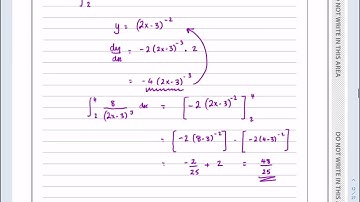 ∫₂
y = (2x-3)⁻²
dy/dx = -2(2x-3)⁻³ · 2
= -4(2x-3)⁻³
∫₂⁴ 8/(2x-3)³ dx = [-2(2x-3)⁻²]₂⁴
= [-2(8-3)⁻²] - [-2(4-3)⁻²]
= -2/25 + 2 = 48/25
DO NOT WRITE IN THIS AREA
DO NOT WRITE IN THIS